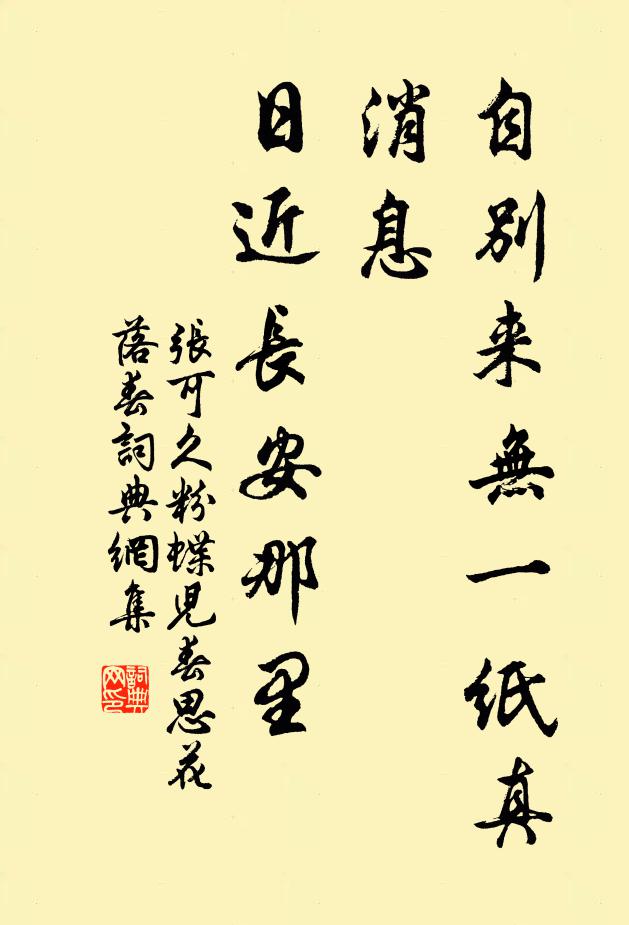 自別来無一紙真
消息
日近長安那里
張可久粉蝶児春思花
落春詞典網集
詞典
网印